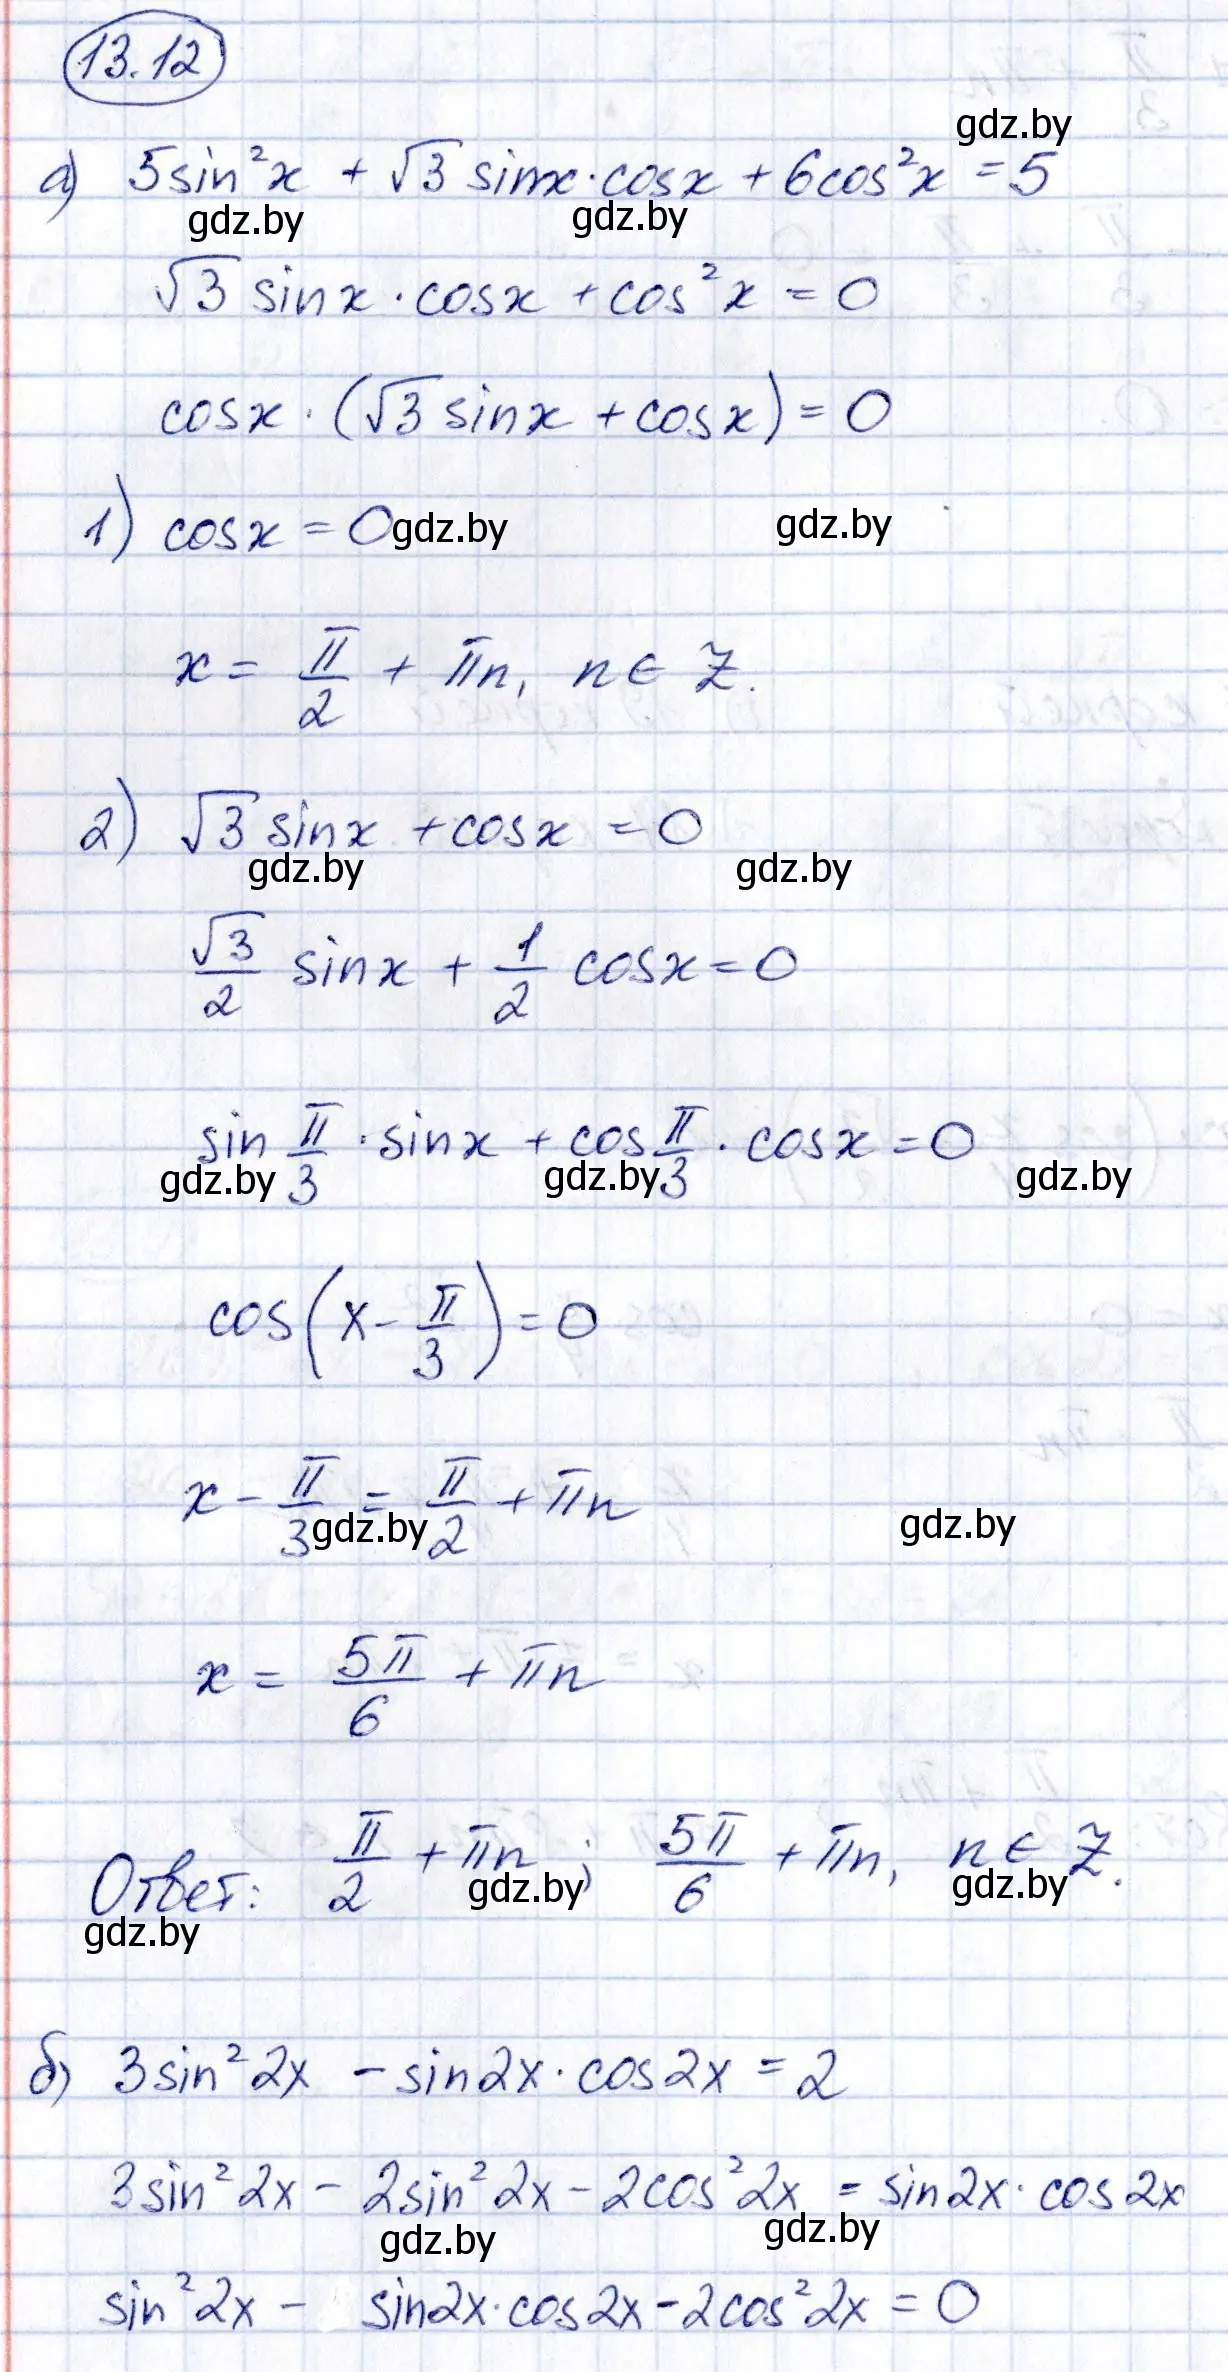 13.12
gdz.by
а) 5sin²x + √3 sinx·cosx + 6cos²x = 5
gdz.by gdz.by
√3 sinx · cosx + cos²x = 0
cosx · (√3 sinx + cosx) = 0
1) cosx = 0 gdz.by gdz.by
x = π/2 + πn, n ∈ Z.
2) √3 sinx + cosx = 0
gdz.by gdz.by
√3/2 sinx + 1/2 cosx = 0
sin π/3 · sinx + cos π/3 · cosx = 0
gdz.by gdz.by gdz.by
cos(x - π/3) = 0
x - π/3 = π/2 + πn
gdz.by gdz.by
x = 5π/6 + πn
Ответ: π/2 + πn ; 5π/6 + πn, n ∈ Z.
gdz.by gdz.by gdz.by
б) 3sin²2x - sin2x · cos2x = 2
3sin²2x - 2sin²2x - 2cos²2x = sin2x · cos2x
gdz.by gdz.by
sin²2x - sin2x·cos2x - 2cos²2x = 0